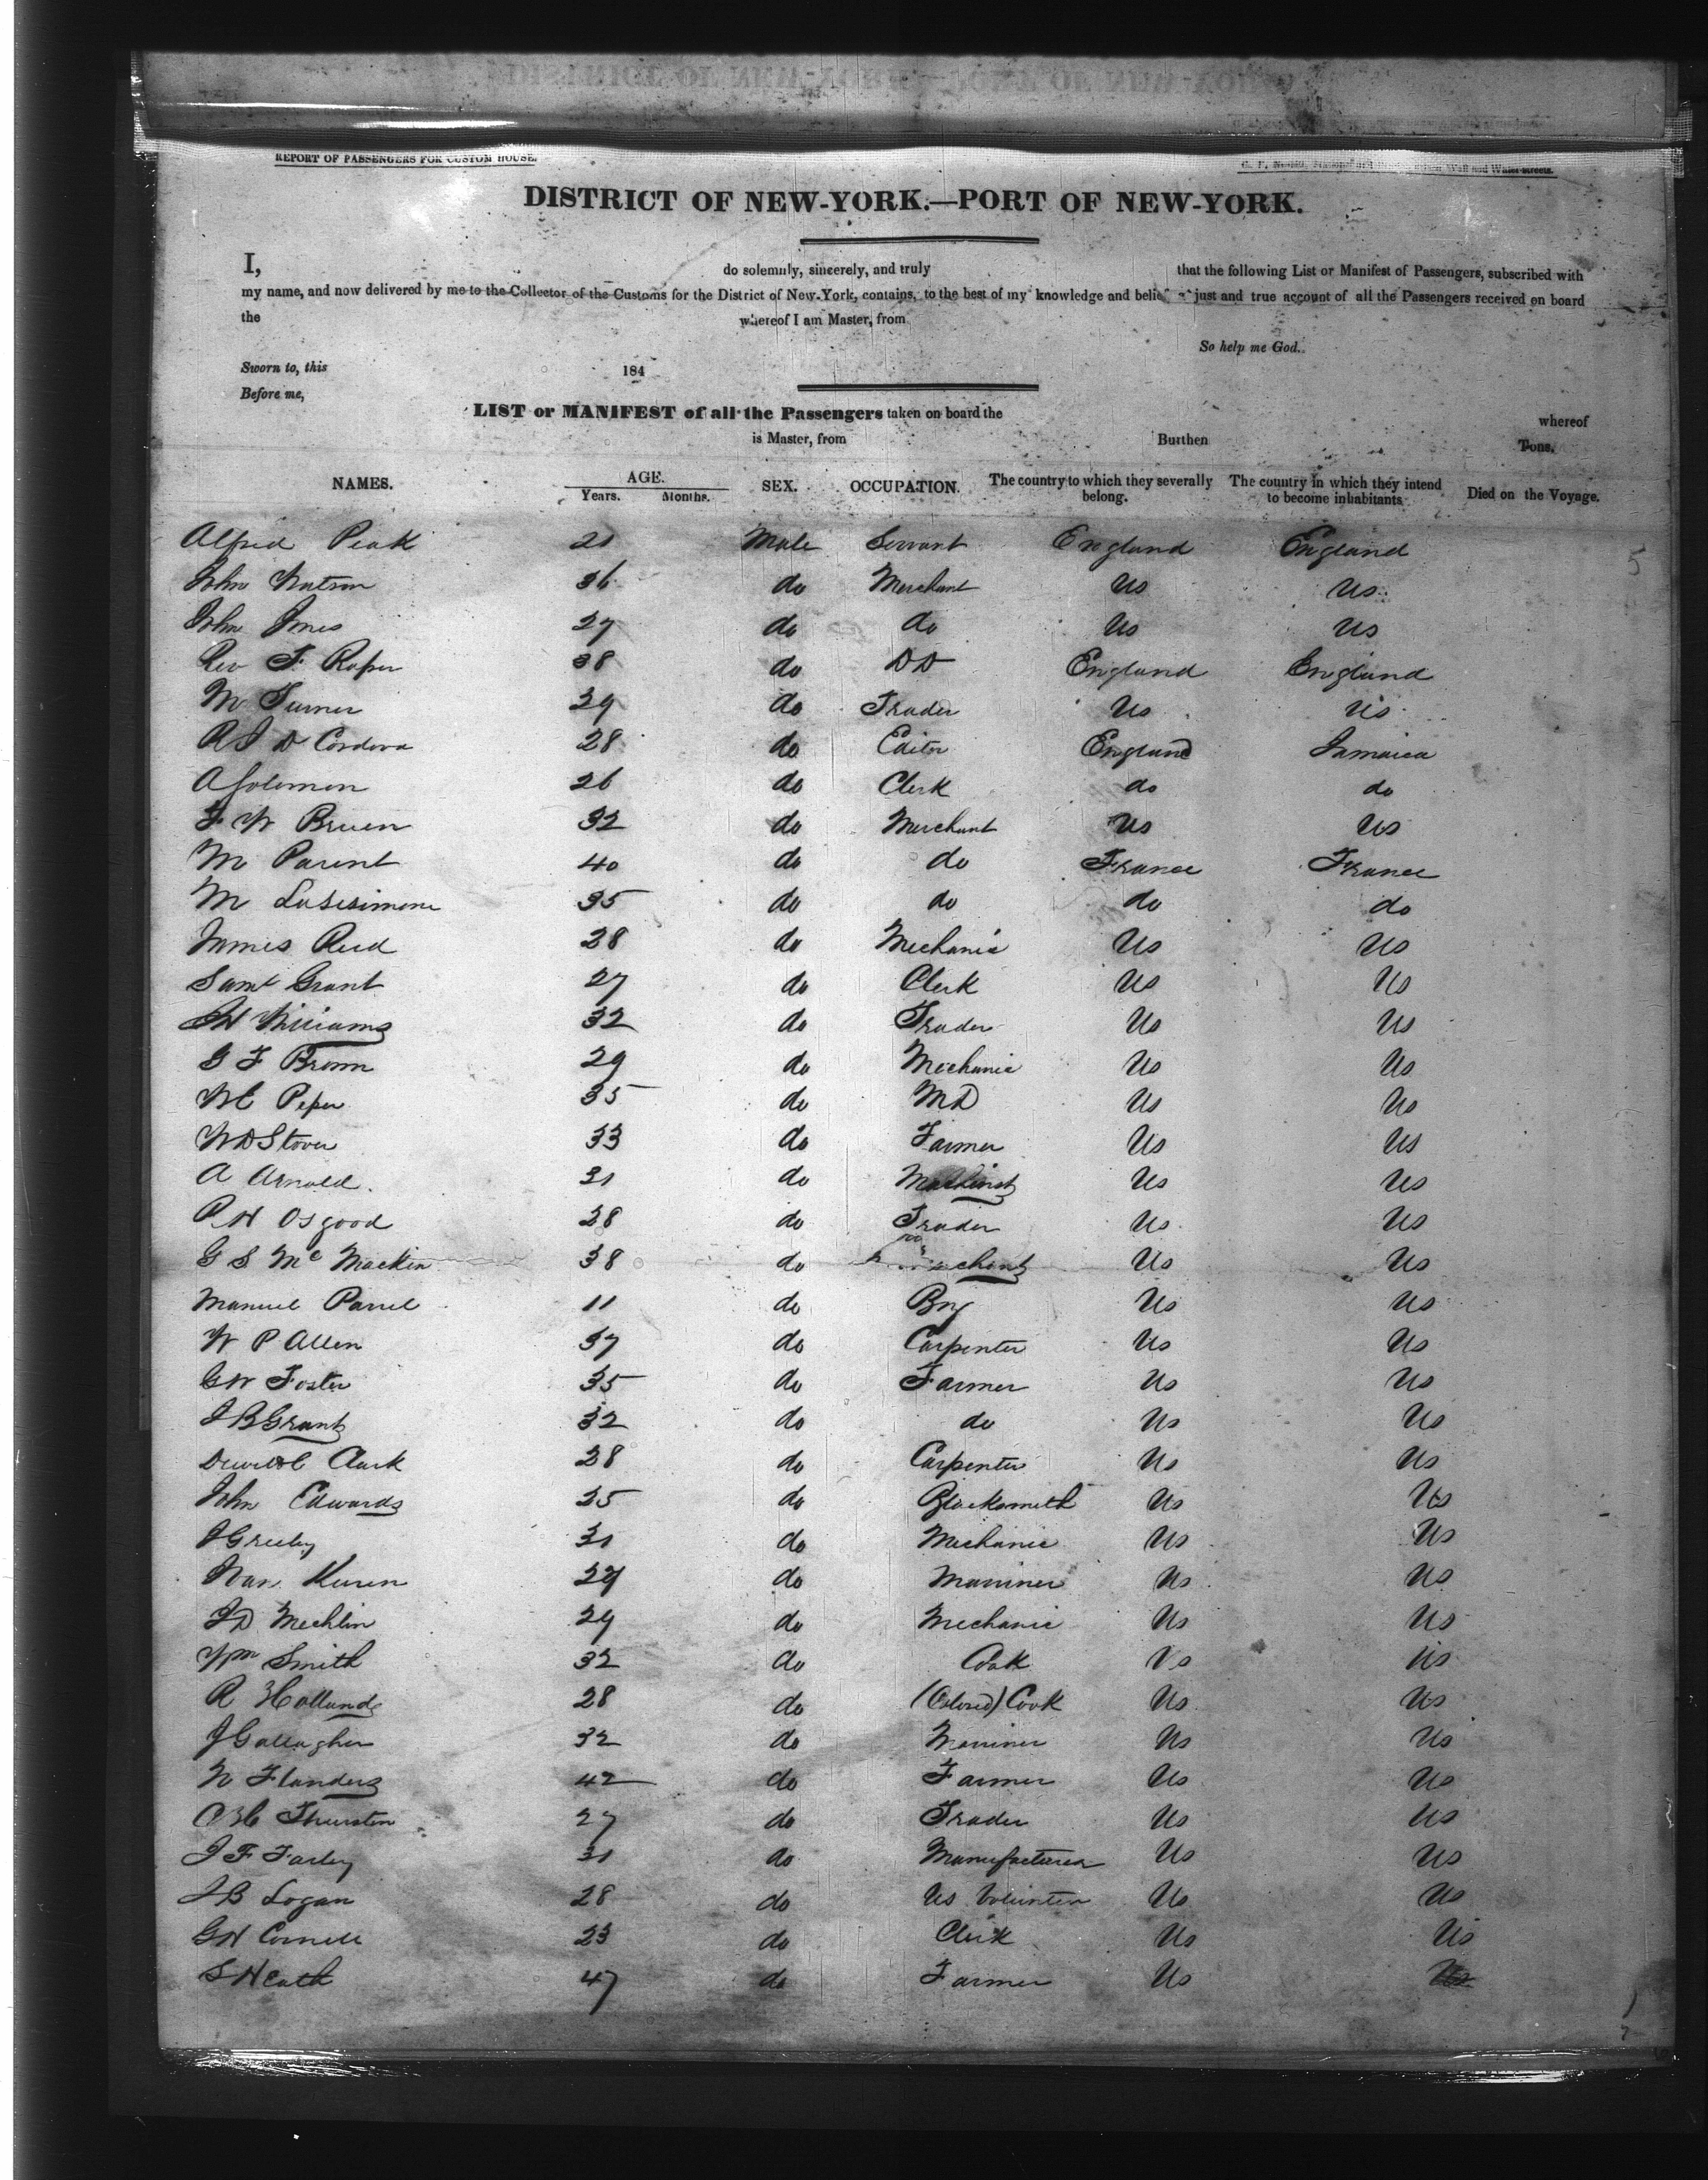 REPORT OF PASSENGERS FOR CUSTOM HOUSE.
Wall and Water-streets.
DISTRICT OF NEW-YORK.—PORT OF NEW-YORK.
I, do solemnly, sincerely, and truly that the following List or Manifest of Passengers, subscribed with
my name, and now delivered by me to the Collector of the Customs for the District of New-York, contains, to the best of my knowledge and belief just and true account of all the Passengers received on board
the whereof I am Master, from
So help me God.
Sworn to, this 184
Before me,
LIST or MANIFEST of all the Passengers taken on board the whereof
is Master, from Burthen Tons.
NAMES. AGE. Years. Months. SEX. OCCUPATION. The country to which they severally belong. The country in which they intend to become inhabitants Died on the Voyage.
Alfred Peak 21 Male Servant England England
John Watson 36 do Merchant Us Us
John Imes 27 do do Us Us
Rev F. Roper 38 do DD England England
M Turner 29 do Trader Us Us
R J D Cordova 28 do Editor England Jamaica
A Solomon 26 do Clerk do do
F W Bruen 32 do Merchant Us Us
M Parent 40 do do France France
M 35 do do do do
James Reid 28 do Mechanic Us Us
Saml Grant 27 do Clerk Us Us
J H Williams 32 do Trader Us Us
G F Brown 29 do Mechanic Us Us
W C Peper 35 do MD Us Us
W D Stover 33 do Farmer Us Us
A Arnold. 31 do Machinist Us Us
P H Osgood 28 do Trader Us Us
G S Mc Mackin 38 do Us Us
Manuel Parrel 11 do Boy Us Us
W P Allen 37 do Carpenter Us Us
G W Foster 35 do Farmer Us Us
J B Grant 32 do do Us Us
Clark 28 do Carpenter Us Us
John Edwards 25 do Blacksmith Us Us
J Greeley 31 do Mechanic Us Us
J Van Keuren 27 do Mariner Us Us
J D Mechlin 29 do Mechanic Us Us
Wm Smith 32 do Cook Us Us
R Holland 28 do (Colored) Cook Us Us
J Gallagher 32 do Mariner Us Us
N Flanders 42 do Farmer Us Us
Thurston 27 do Trader Us Us
J F Farley 31 do Manufacturer Us Us
J B Logan 28 do Us Volunteer Us Us
G H Cornell 23 do Clerk Us Us
S Heath 47 do Farmer Us Us